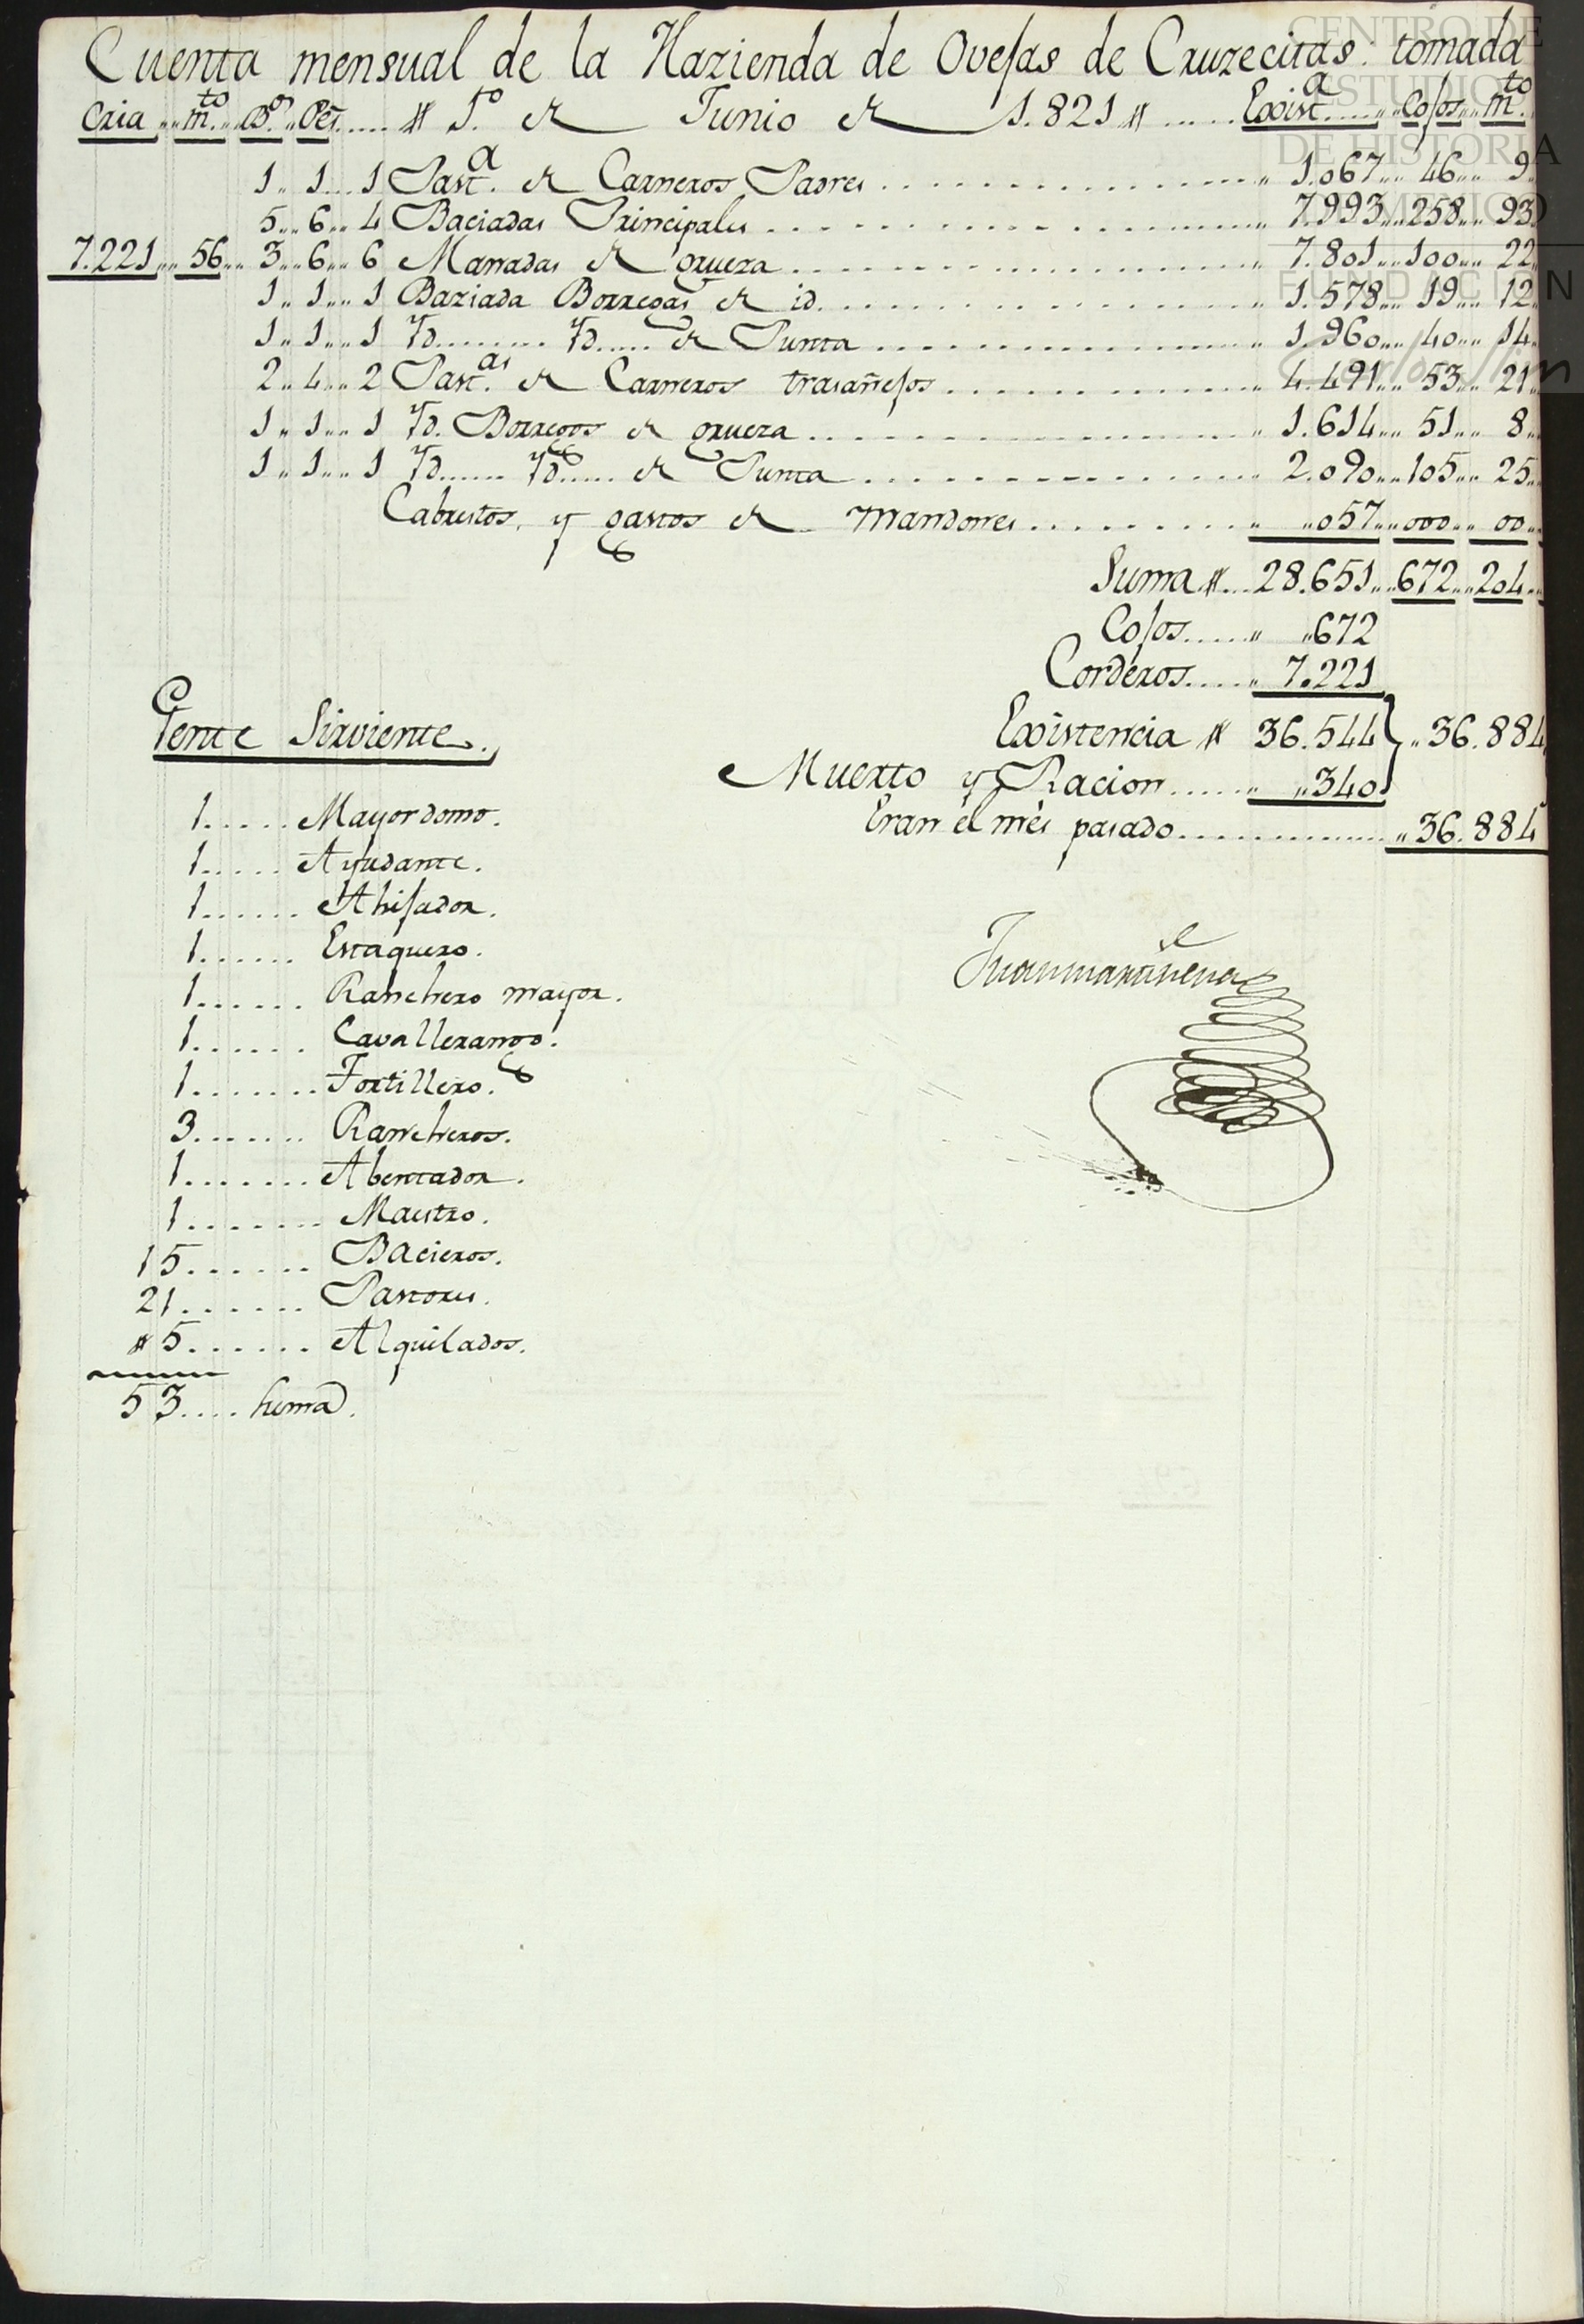 CENTRO DE
ESTUDIOS
DE HISTORIA
DE MÉXICO
FUNDACIÓN
Carlos Slim
Cuenta mensual de la Hazienda de Ovejas de Cruzecitas. tomada
Cria m.to B.s Pes # 1.o de Junio de 1.821 # Exist.a Cojos m.to
1 1 1 Past.a de Carneros Padres 1.067 46 9
5 6 4 Baciadas Principales 7.993 258 93
7.221 56 3 6 6 Manadas de grueza 7.801 100 22
1 1 1 Baziada Borregas de id. 1.578 19 12
1 1 1 Yd. Yd. de Punta 1.960 40 14
2 4 2 Past.as de Carneros trasañejos 4.491 53 21
1 1 1 Yd. Borregos de grueza 1.614 51 8
1 1 1 Yd. Yd. de Punta 2.090 105 25
Cabrestos, y gastos de mandones 057 000 00
Suma # 28.651 672 204
Cojos 672
Corderos 7.221
Existencia # 36.544 36.884
Muerto y Racion 340
Eran el mes pasado 36.884
Gente Sirviente.
1 Mayordomo.
1 Ayudante.
1 Ahijador.
1 Estaquero.
1 Ranchero mayor.
1 Cavallerango.
1 Tortillero.
3 Rancheros.
1 Abentador.
1 Maestro.
15 Bacieros.
21 Pastores.
# 5 Alquilados.
53 suma.